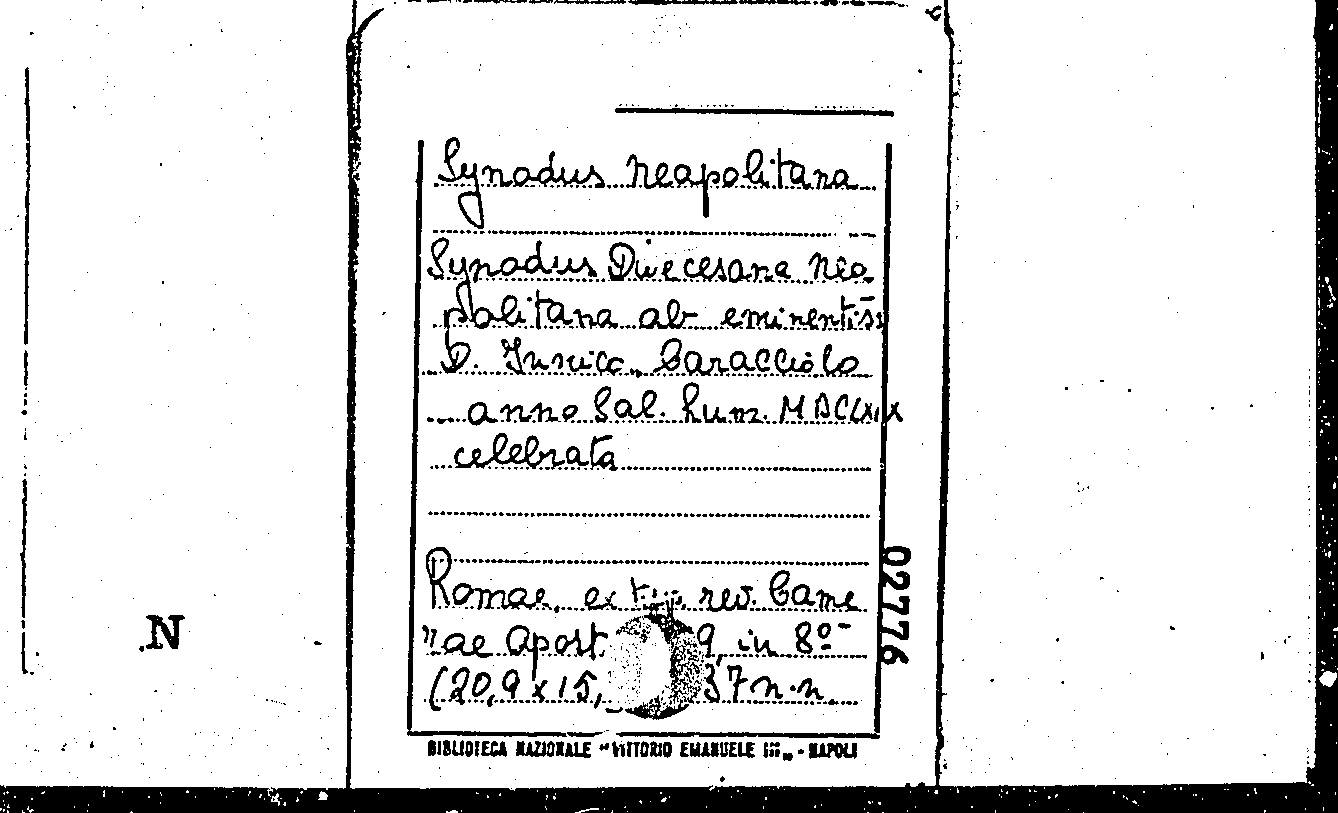 Synodus Neapolitana
Synodus Diecesana Nea
politana ab eminentis̄s
D. Innico Caracciolo
anno Sal. hum. MDCLXIX
celebrata
Romae, ex typ. rev. Came
rae Apost. 9, in 8º
(20,9 x 15, 37 n.n.
BIBLIOTECA NAZIONALE "VITTORIO EMANUELE III" - NAPOLI
02776
N